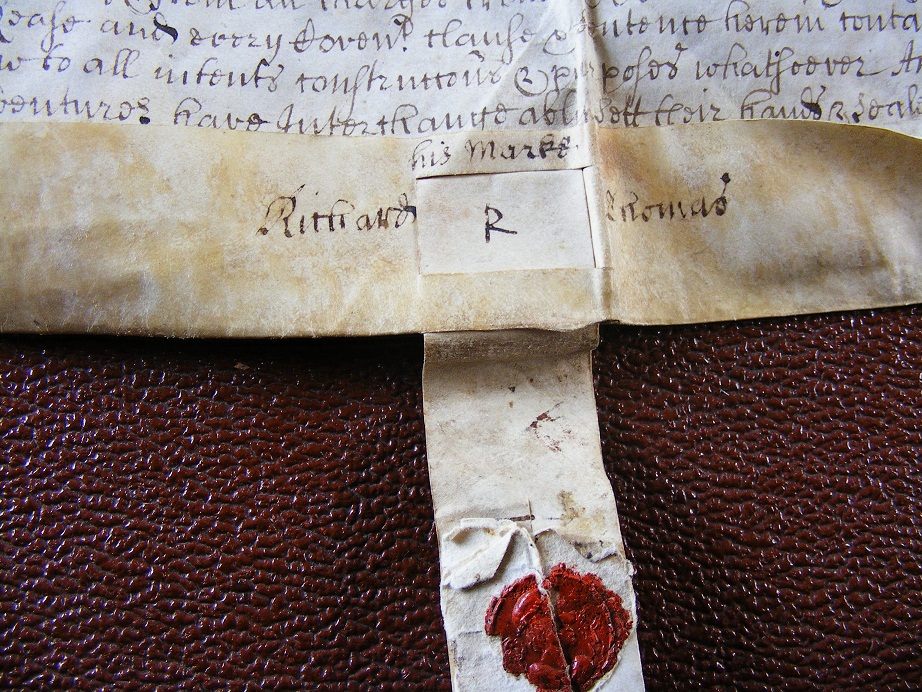 Lease and every Coven.t clause Sentence herein conta
to all intents constructions & purposes whatsoever An
dentures have Interchangeably sett their hands & seal
his Marke
Richard R Thomas